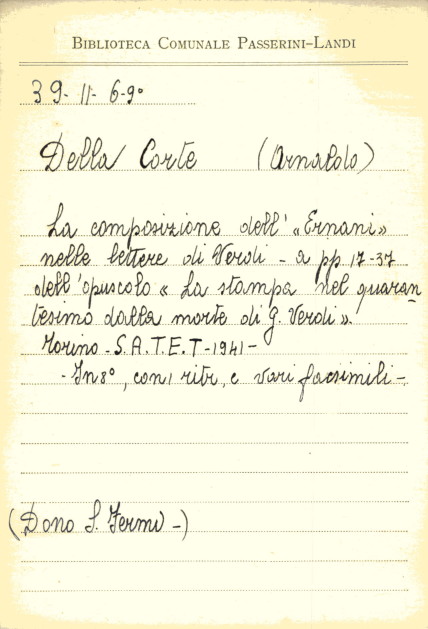 BIBLIOTECA COMUNALE PASSERINI-LANDI
39-11-6-9°
Della Corte (Arnaldo)
La composizione dell' «Ernani»
nelle lettere di Verdi - a pp 17-37
dell'opuscolo « La stampa nel quaran
tesimo dalla morte di G. Verdi ».
Torino - S.A.T.E.T - 1941 -
- In 8°, con 1 ritr, e vari facsimili -
(Dono S. Fermi -)